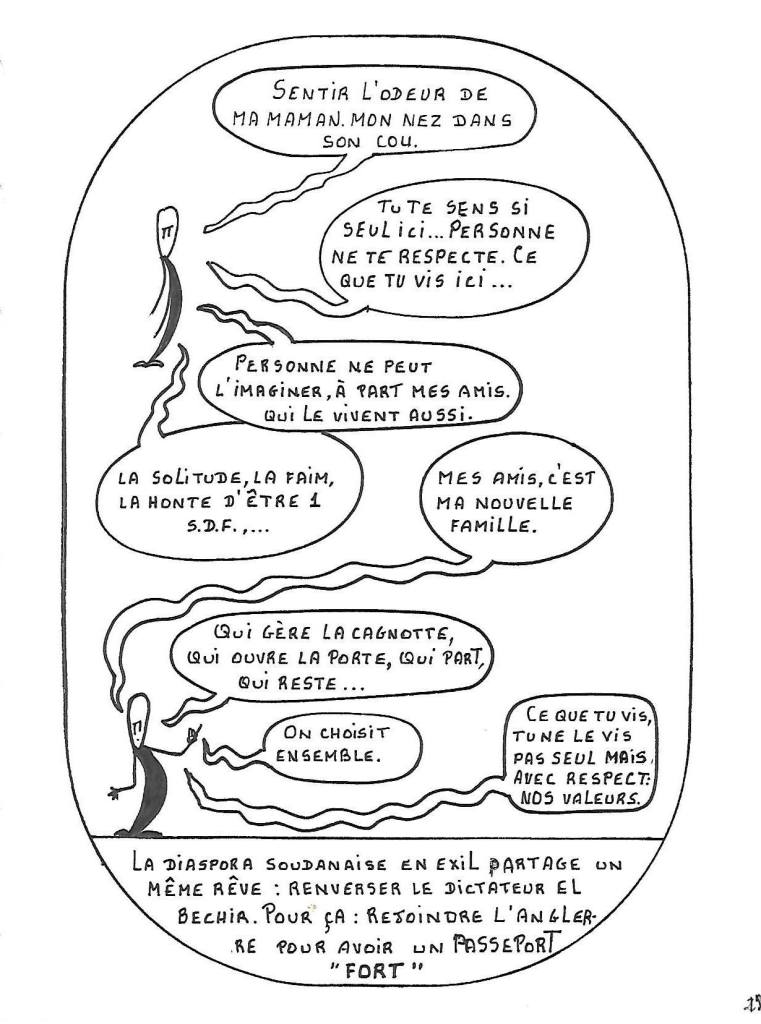 SENTIR L'ODEUR DE
MA MAMAN. MON NEZ DANS
SON COU.
TU TE SENS SI
SEUL ICI... PERSONNE
NE TE RESPECTE. CE
QUE TU VIS ICI...
PERSONNE NE PEUT
L'IMAGINER, À PART MES AMIS.
QUI LE VIVENT AUSSI.
LA SOLITUDE, LA FAIM,
LA HONTE D'ÊTRE 1
S.D.F.,...
MES AMIS, C'EST
MA NOUVELLE
FAMILLE.
QUI GÈRE LA CAGNOTTE,
QUI OUVRE LA PORTE, QUI PART,
QUI RESTE...
ON CHOISIT
ENSEMBLE.
CE QUE TU VIS,
TU NE LE VIS
PAS SEUL MAIS,
AVEC RESPECT:
NOS VALEURS.
LA DIASPORA SOUDANAISE EN EXIL PARTAGE UN
MÊME RÊVE : RENVERSER LE DICTATEUR EL
BECHIR. POUR ÇA : REJOINDRE L'ANGLER-
RE POUR AVOIR UN PASSEPORT
"FORT"